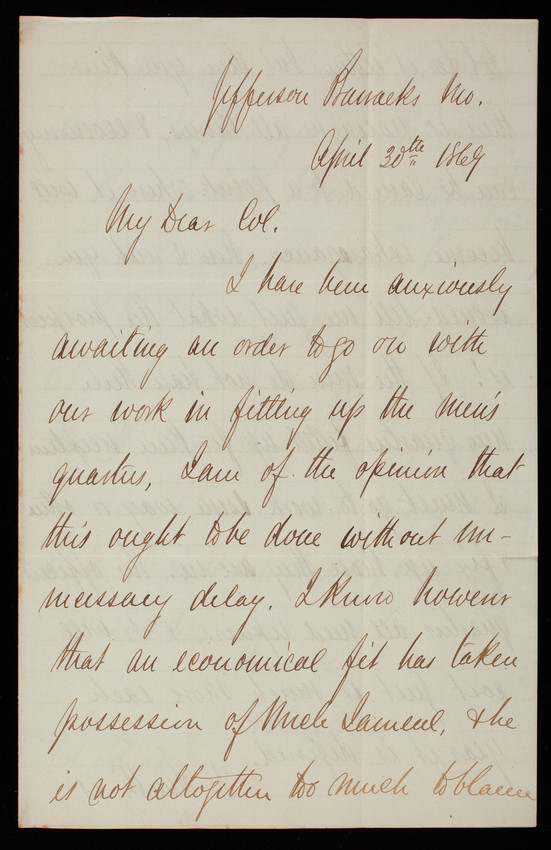 Jefferson Barracks Mo.
April 30th 1869
My Dear Col.
I have been anxiously
awaiting an order to go on with
our work in fitting up the men's
quarters, I am of the opinion that
this ought to be done without un-
necessary delay. I know however
that an economical fit has taken
possession of Uncle Samuel, & he
is not altogether too much to blame